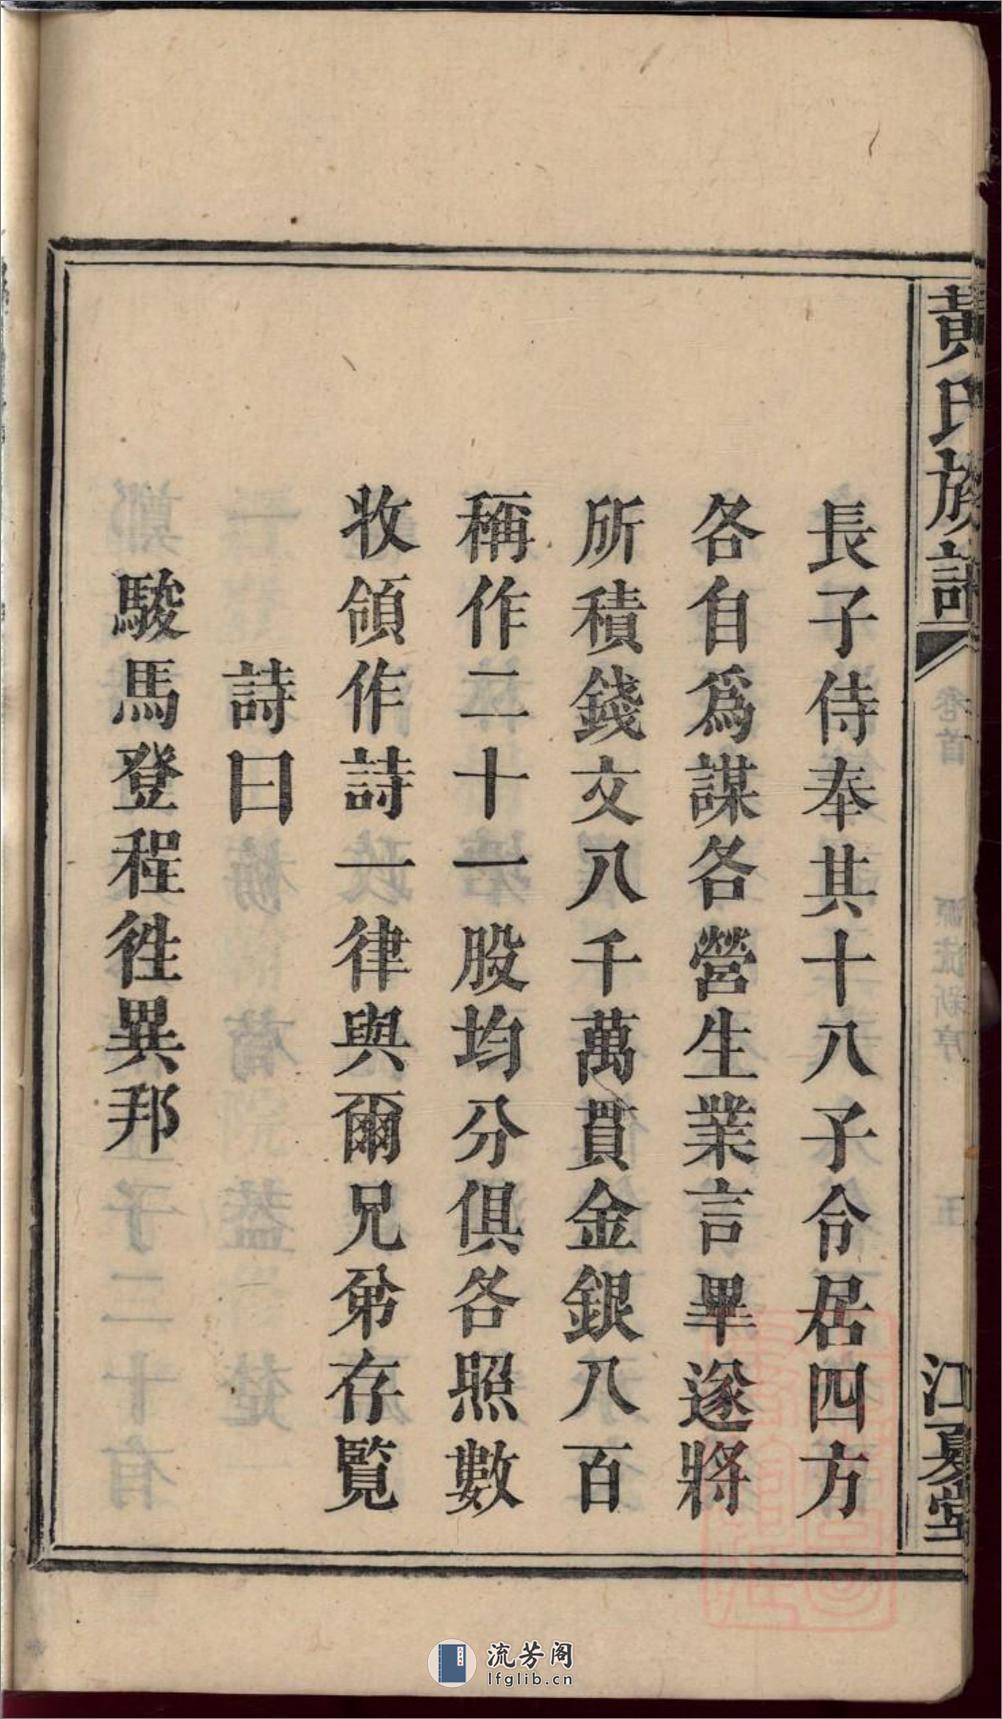 黃氏族譜
江夏堂
長子侍奉其十八子令居四方
各自爲謀各營生業言畢遂將
所積錢文八千萬貫金銀八百
稱作二十一股均分俱各照數
收領作詩一律與爾兄弟存覧
詩曰
駿馬登程徃異邦
流芳阁
lfglib.cn